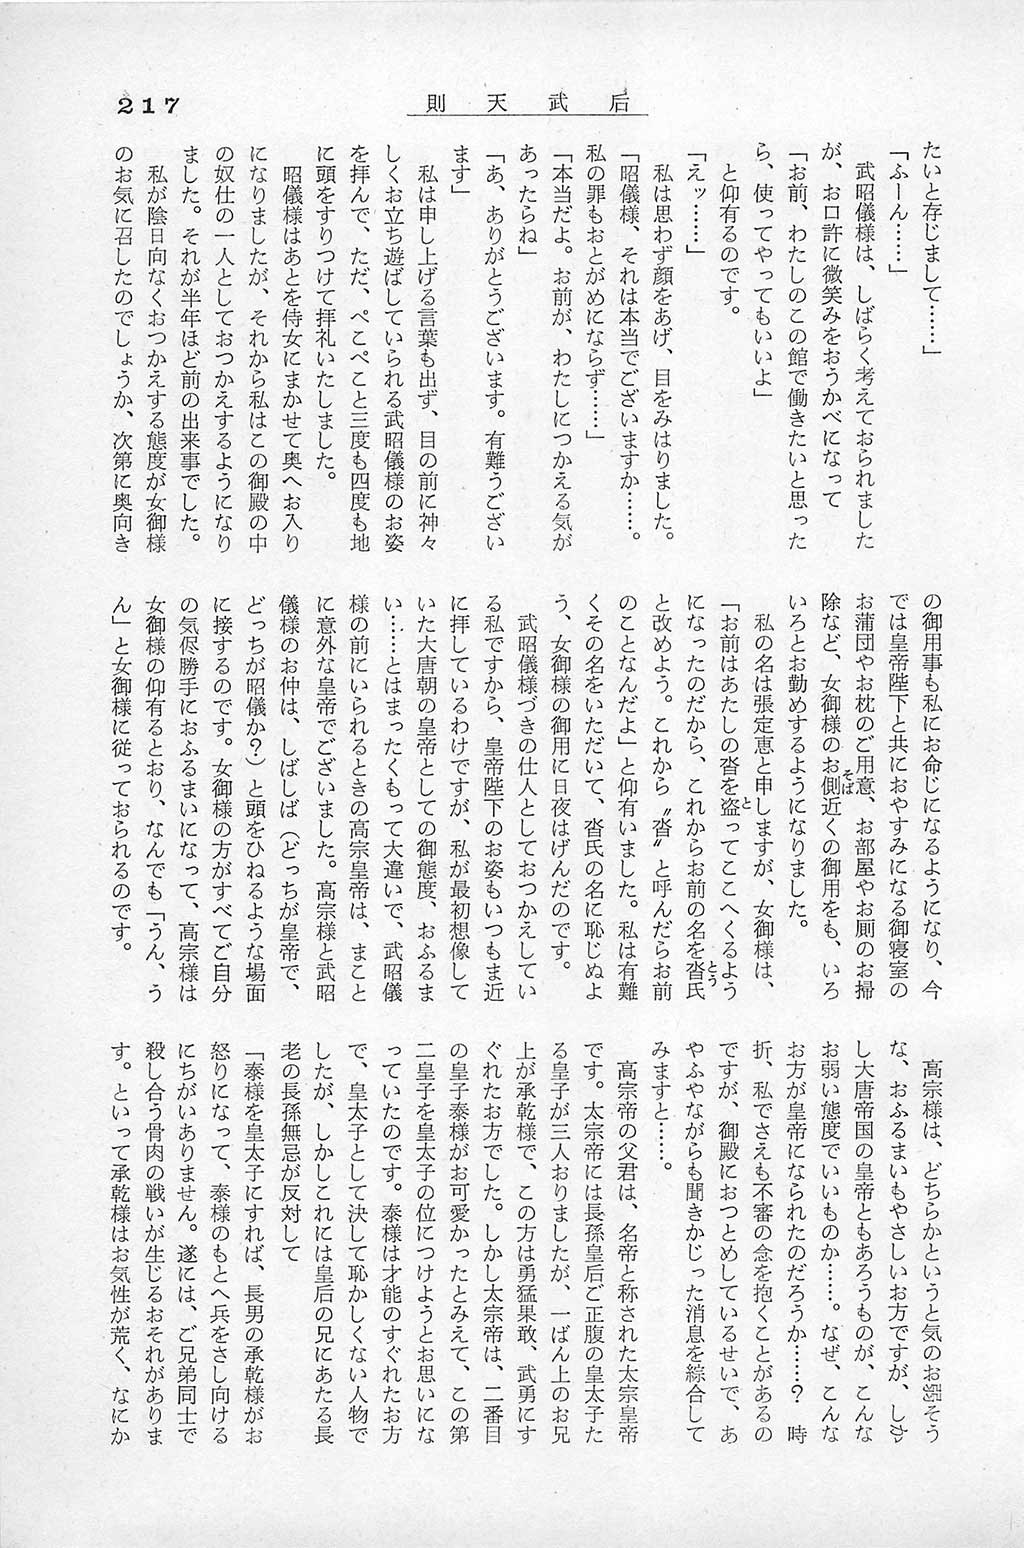 217
則天武后
たいと存じまして……」
「ふーん……」
　武昭儀様は、しばらく考えておられました
が、お口許に微笑みをおうかべになって
「お前、わたしのこの館で働きたいと思った
ら、使ってやってもいいよ」
　と仰有るのです。
「えッ……」
　私は思わず顔をあげ、目をみはりました。
「昭儀様、それは本当でございますか……。
私の罪もおとがめにならず……」
「本当だよ。お前が、わたしにつかえる気が
あったらね」
「あ、ありがとうございます。有難うござい
ます」
　私は申し上げる言葉も出ず、目の前に神々
しくお立ち遊ばしていられる武昭儀様のお姿
を拝んで、ただ、ぺこぺこと三度も四度も地
に頭をすりつけて拝礼いたしました。
　昭儀様はあとを侍女にまかせて奥へお入り
になりましたが、それから私はこの御殿の中
の奴仕の一人としておつかえするようになり
ました。それが半年ほど前の出来事でした。
　私が陰日向なくおつかえする態度が女御様
のお気に召したのでしょうか、次第に奥向き
の御用事も私にお命じになるようになり、今
では皇帝陛下と共におやすみになる御寝室の
お蒲団やお枕のご用意、お部屋やお厠のお掃
除など、女御様のお側近くの御用をも、いろ
いろとお勤めするようになりました。
　私の名は張定恵と申しますが、女御様は、
「お前はあたしの沓を盗ってここへくるよう
になったのだから、これからお前の名を沓氏
と改めよう。これから〝沓〟と呼んだらお前
のことなんだよ」と仰有いました。私は有難
くその名をいただいて、沓氏の名に恥じぬよ
う、女御様の御用に日夜はげんだのです。
　武昭儀様づきの仕人としておつかえしてい
る私ですから、皇帝陛下のお姿もいつもま近
に拝しているわけですが、私が最初想像して
いた大唐朝の皇帝としての御態度、おふるま
い……とはまったくもって大違いで、武昭儀
様の前にいられるときの高宗皇帝は、まこと
に意外な皇帝でございました。高宗様と武昭
儀様のお仲は、しばしば（どっちが皇帝で、
どっちが昭儀か？）と頭をひねるような場面
に接するのです。女御様の方がすべてご自分
の気侭勝手におふるまいになって、高宗様は
女御様の仰有るとおり、なんでも「うん、う
ん」と女御様に従っておられるのです。
　高宗様は、どちらかというと気のおそう
な、おふるまいもやさしいお方ですが、し
し大唐帝国の皇帝ともあろうものが、こんな
お弱い態度でいいものか……。なぜ、こんな
お方が皇帝になられたのだろうか……？　時
折、私でさえも不審の念を抱くことがあるの
ですが、御殿におつとめしているせいで、あ
やふやながらも聞きかじった消息を綜合して
みますと……。
　高宗帝の父君は、名帝と称された太宗皇帝
です。太宗帝には長孫皇后ご正腹の皇太子た
る皇子が三人おりましたが、一ばん上のお兄
上が承乾様で、この方は勇猛果敢、武勇にす
ぐれたお方でした。しかし太宗帝は、二番目
の皇子泰様がお可愛かったとみえて、この第
二皇子を皇太子の位につけようとお思いにな
っていたのです。泰様は才能のすぐれたお方
で、皇太子として決して恥かしくない人物で
したが、しかしこれには皇后の兄にあたる長
老の長孫無忌が反対して
「泰様を皇太子にすれば、長男の承乾様がお
怒りになって、泰様のもとへ兵をさし向ける
にちがいありません。遂には、ご兄弟同士で
殺し合う骨肉の戦いが生じるおそれがありま
す。といって承乾様はお気性が荒く、なにか